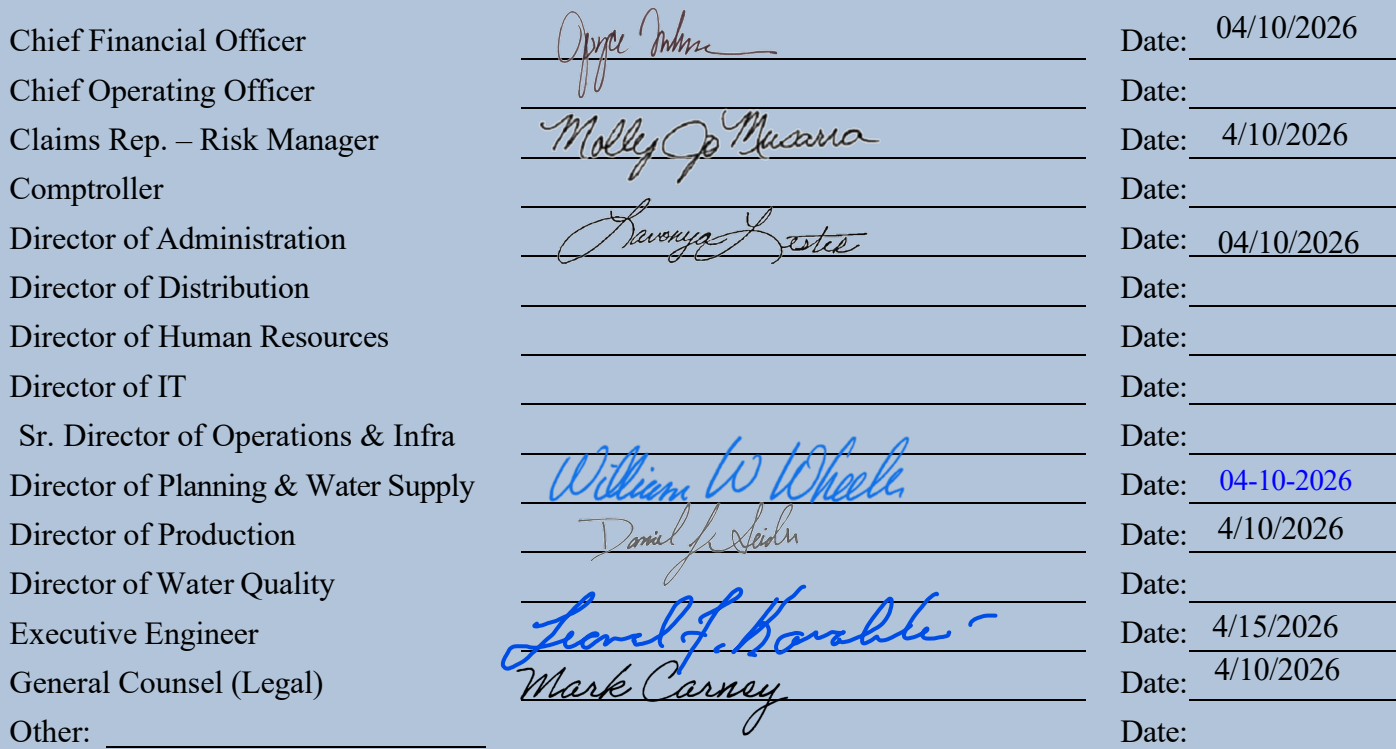 Chief Financial Officer Date: 04/10/2026
Chief Operating Officer Date:
Claims Rep. – Risk Manager Molly Jo Musarra Date: 4/10/2026
Comptroller Date:
Director of Administration Lavonya Lester Date: 04/10/2026
Director of Distribution Date:
Director of Human Resources Date:
Director of IT Date:
Sr. Director of Operations & Infra Date:
Director of Planning & Water Supply William W Wheeler Date: 04-10-2026
Director of Production Daniel Date: 4/10/2026
Director of Water Quality Date:
Executive Engineer F. Date: 4/15/2026
General Counsel (Legal) Mark Carney Date: 4/10/2026
Other: Date: